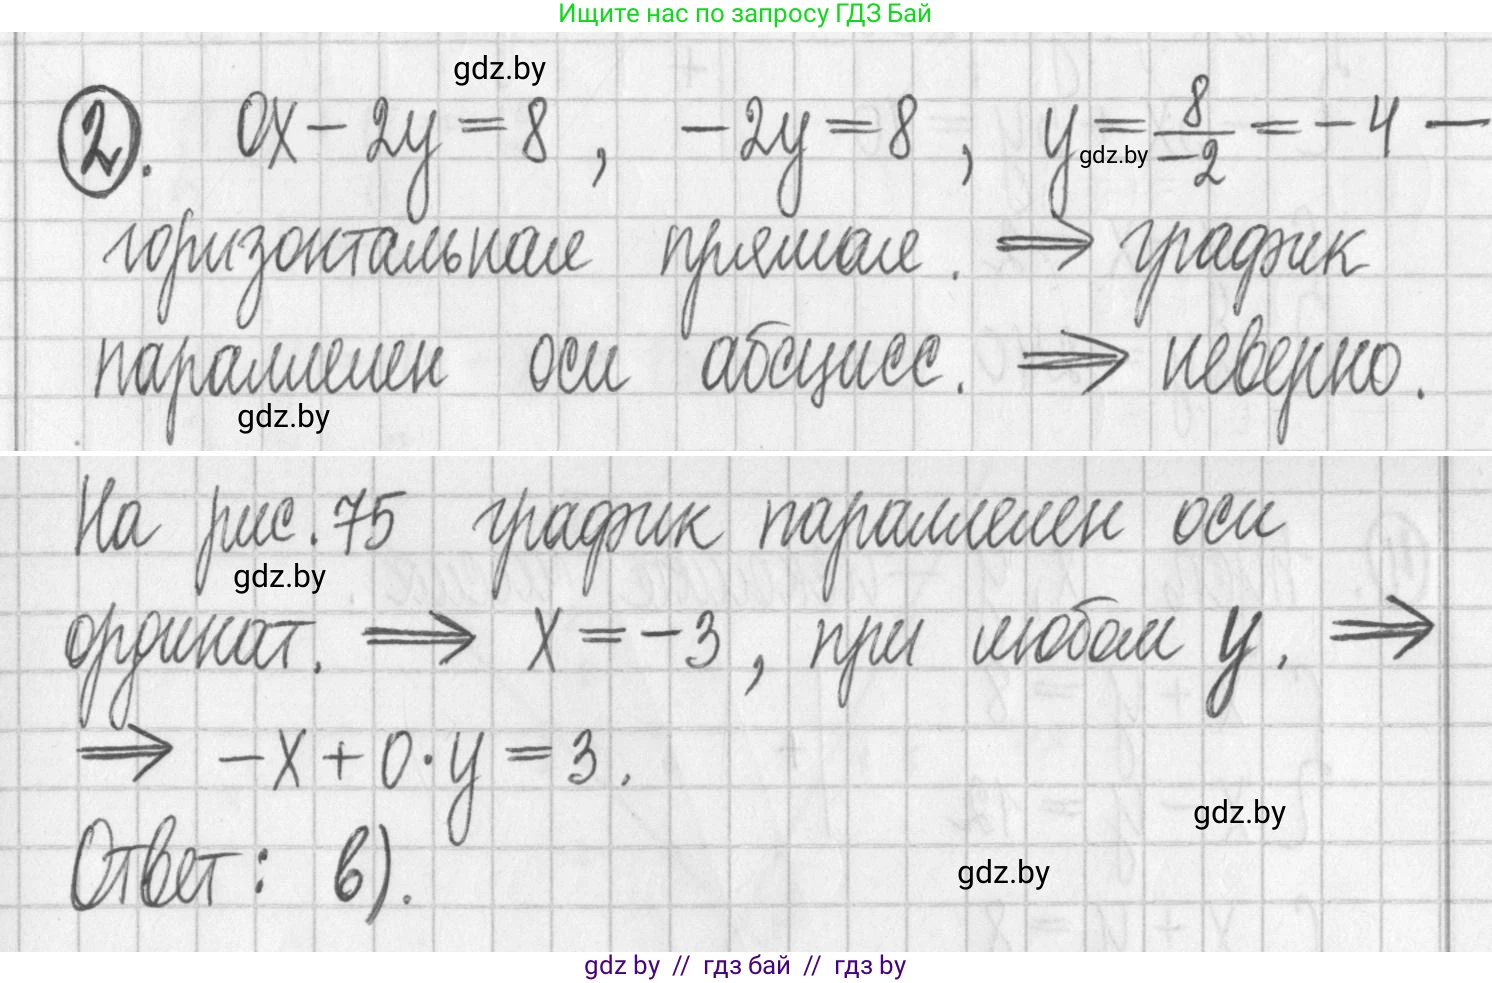 Ищите нас по запросу ГДЗ Бай
gdz.by
2. 0x - 2y = 8, -2y = 8, y = 8/-2 = -4 -
gdz.by
горизонтальная прямая. ⇒ график
параллелен оси абсцисс. ⇒ неверно.
gdz.by
На рис. 75 график параллелен оси
gdz.by
ординат. ⇒ x = -3, при любом y. ⇒
⇒ -x + 0·y = 3.
gdz.by
Ответ: в).
gdz.by
gdz by // гдз бай // гдз by